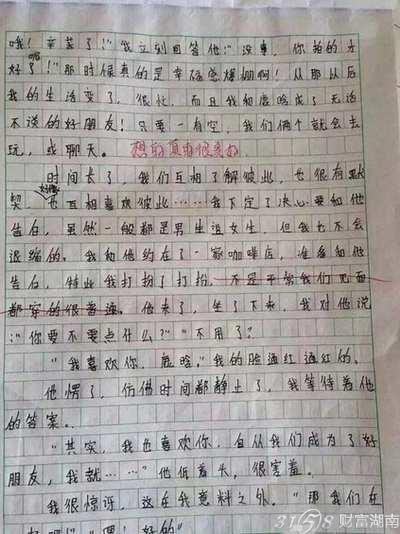 哦！辛苦了！"我立刻回答他："没事，你拍的才
好了！"那时候真的是幸福感爆棚啊！从那从后
我的生活变了，很忙，而且我和鹿晗成了无话
不谈的好朋友！只要一有空，我们俩个就会去
玩，或聊天。
时间长了，我们互相了解彼此，也很有默
契，也互相喜欢彼此……我下定了决心要和他
告白，虽然一般都是男生追女生，但我也不会
退缩的。我和他约在了一家咖啡店，准备和他
告白，特此我打扮了打扮，不是平常我们见面
都穿的很普通。他来了，坐了下来，我对他说
："你要不要点什么？""不用了？"
"我喜欢你，鹿晗。"我的脸通红通红的。
他愣了，仿佛时间都静止了，我等待着他
的答案。
"其实，我也喜欢你，自从我们成为了好
朋友，我就……"他低着头，很害羞。
我很惊讶，这在我意料之外。"那我们在
起吧！""嗯！好的"
3158 财富湖南